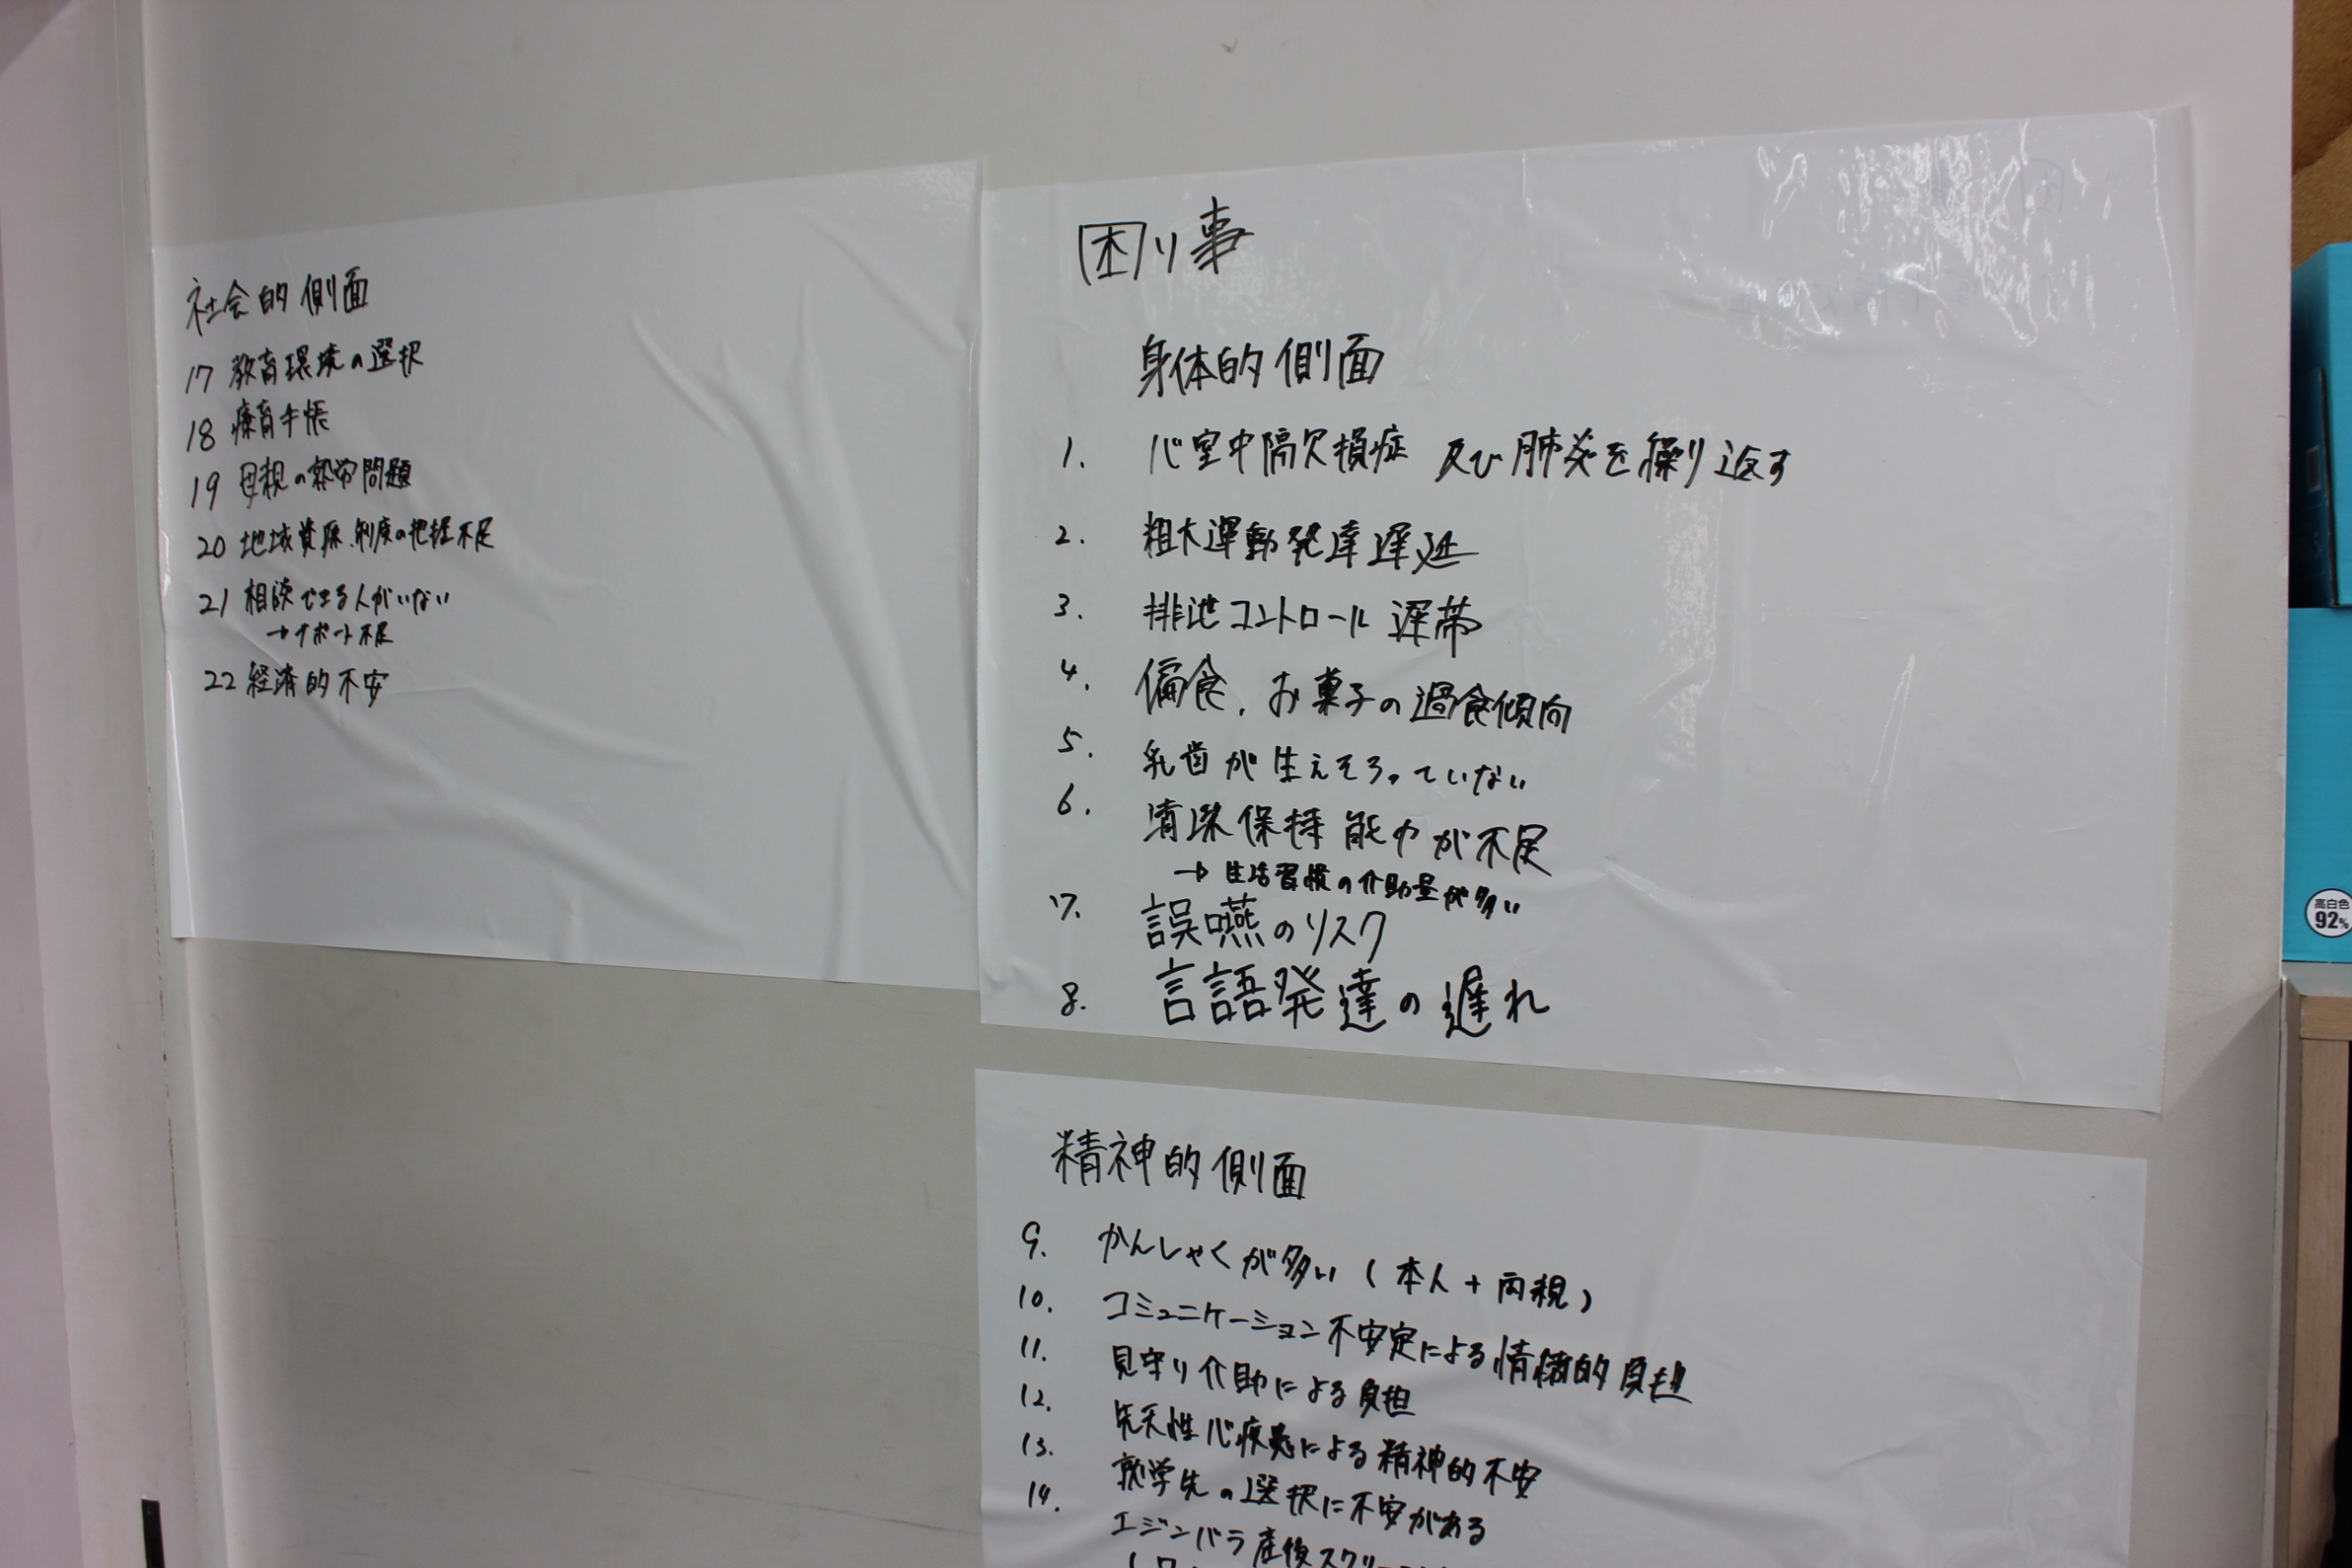 困り事
身体的側面
1. 心室中隔欠損症 及び肺炎を繰り返す
2. 粗大運動発達遅延
3. 排泄コントロール遅滞
4. 偏食、お菓子の過食傾向
5. 乳歯が生えそろっていない
6. 清潔保持能力が不足
→ 生活習慣の介助量が多い
7. 誤嚥のリスク
8. 言語発達の遅れ
精神的側面
9. かんしゃくが多い(本人+両親)
10. コミュニケーション不安定による情緒的負担
11. 見守り介助による負担
12. 先天性心疾患による精神的不安
13. 就学先の選択に不安がある
14. エジンバラ産後スクリー
社会的側面
17 教育環境の選択
18 療育手帳
19 母親の就労問題
20 地域資源、制度の把握不足
21 相談できる人がいない
→サポート不足
22 経済的不安
高白色
92%